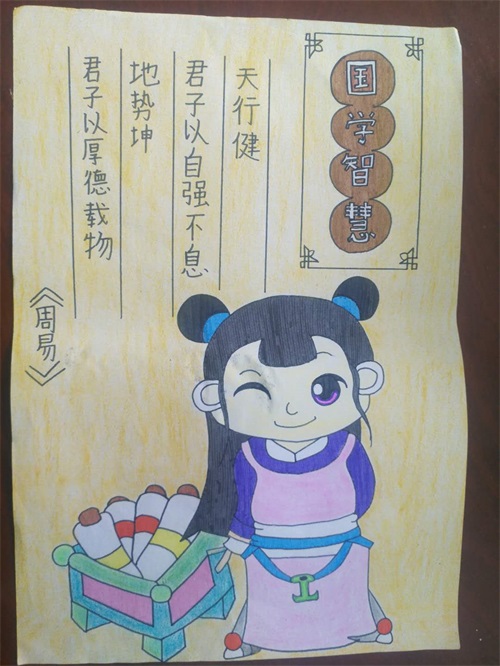 国学智慧
天行健
君子以自强不息
地势坤
君子以厚德载物
《周易》